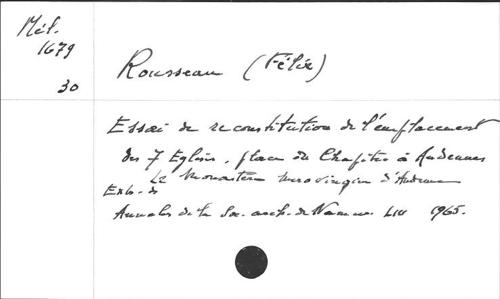 Mél.
1679
30
Rousseau (Félix)
Essai de reconstitution de l'emplacement
des 7 Eglises, place du Chapitre à Andennes
Le Monastère mérovingien d'Andenne
Extr. de
Annales de la Soc. arch. de Namur LIII 1965.